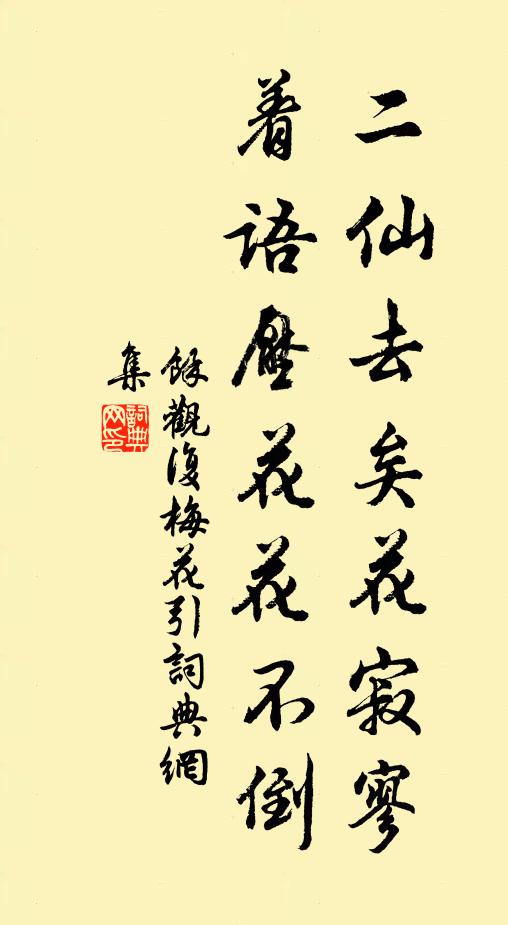 二仙去矣花寂寥
着语壓花花不倒
餘觀復梅花引詞典網
集
詞典
网印